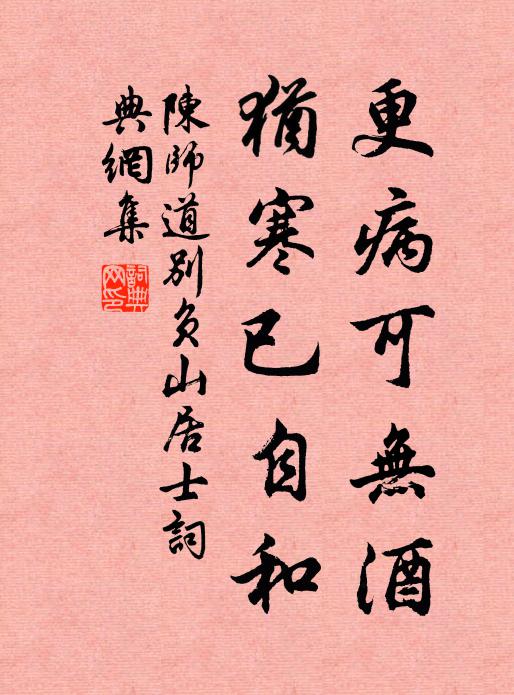 更病可無酒
猶寒已自和
陳師道別負山居士詞
典網集
詞典網印